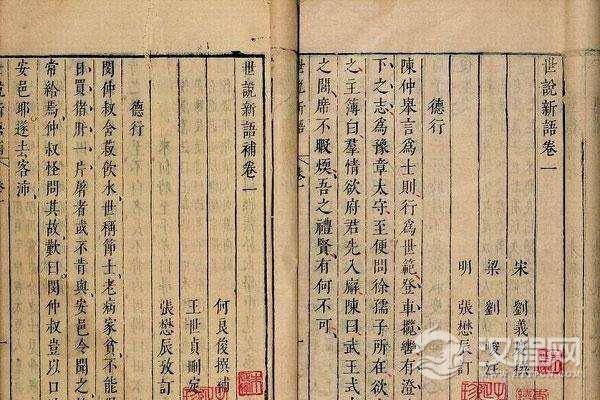 世說新語卷一
宋 劉義撰
梁 劉峻注
明 張懋辰訂
德行
陳仲舉言爲士則行爲世範登車攬轡有澄
下之志爲豫章太守至便問徐孺子所在欲
之主簿曰羣情欲府君先入廨陳曰武王式
之間席不暇煗吾之禮賢有何不可
世說新語 卷一
世說新語補卷一
何良俊撰補
王世貞刪定
張懋辰攷訂
德行
閔仲叔含菽飲水世稱節士老病家貧不能
日買猪肝一片屠者或不肯與安邑令聞之
常給焉仲叔怪問其故歎曰閔仲叔豈以口
安邑耶遂去客沛
世說新語補 卷一